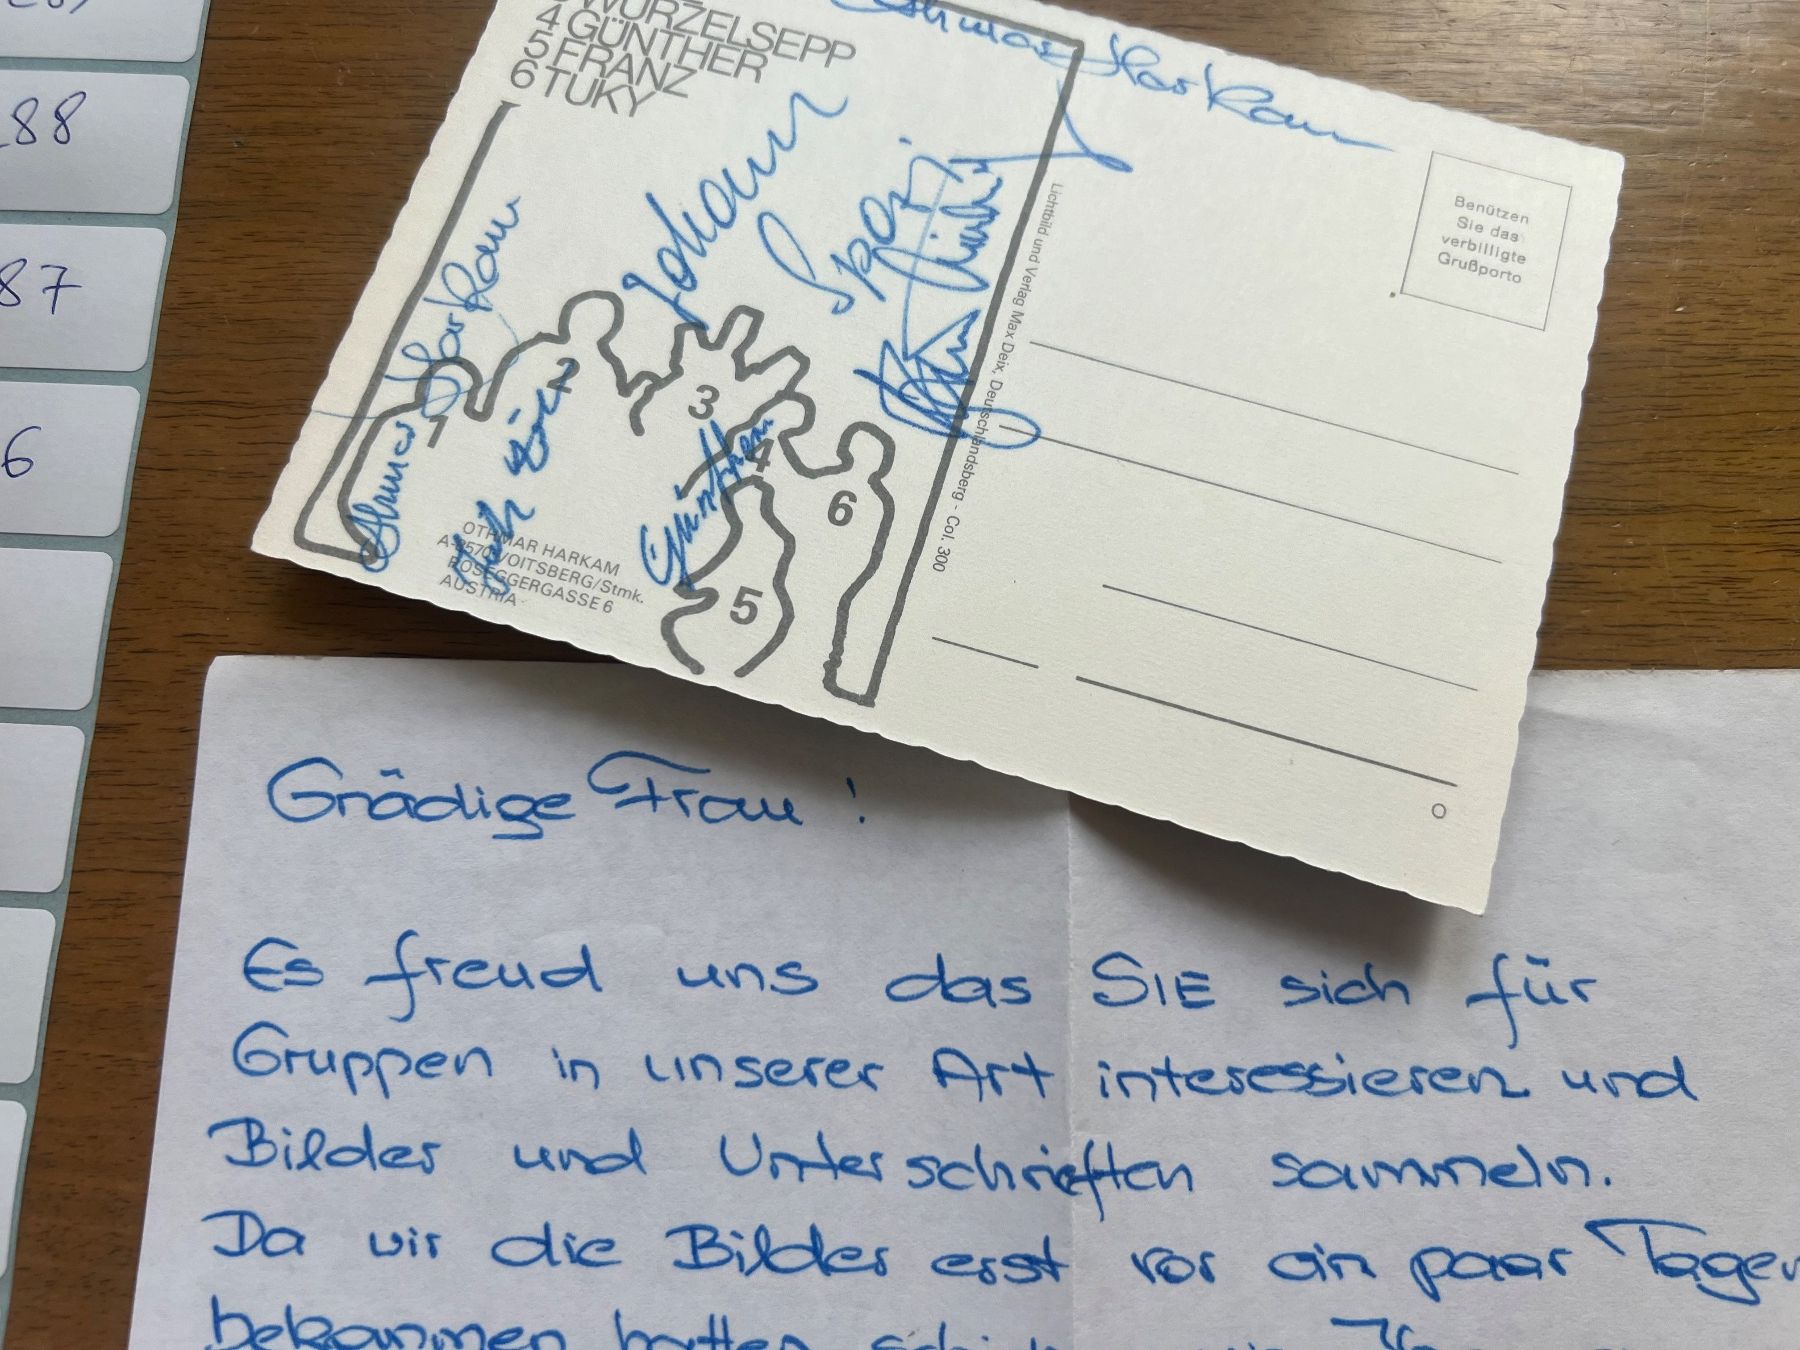 88
87
6
WURZELSEPP
4 GÜNTHER
5 FRANZ
6 TUKY
Harkam
Johann
Harkam
Günther
1
2
3
4
5
6
OTHMAR HARKAM
VOITSBERG/Stmk.
ROSEGGERGASSE 6
AUSTRIA
Lichtbild und Verlag Max Deix, Deutschlandsberg - Col. 300
Benützen
Sie das
verbilligte
Grußporto
Gnädige Frau!
Es freud uns das SIE sich für
Gruppen in unserer Art interessieren und
Bilder und Unterschrieften sammeln.
Da wir die Bilder erst vor ein paar Tagen
bekommen hatten